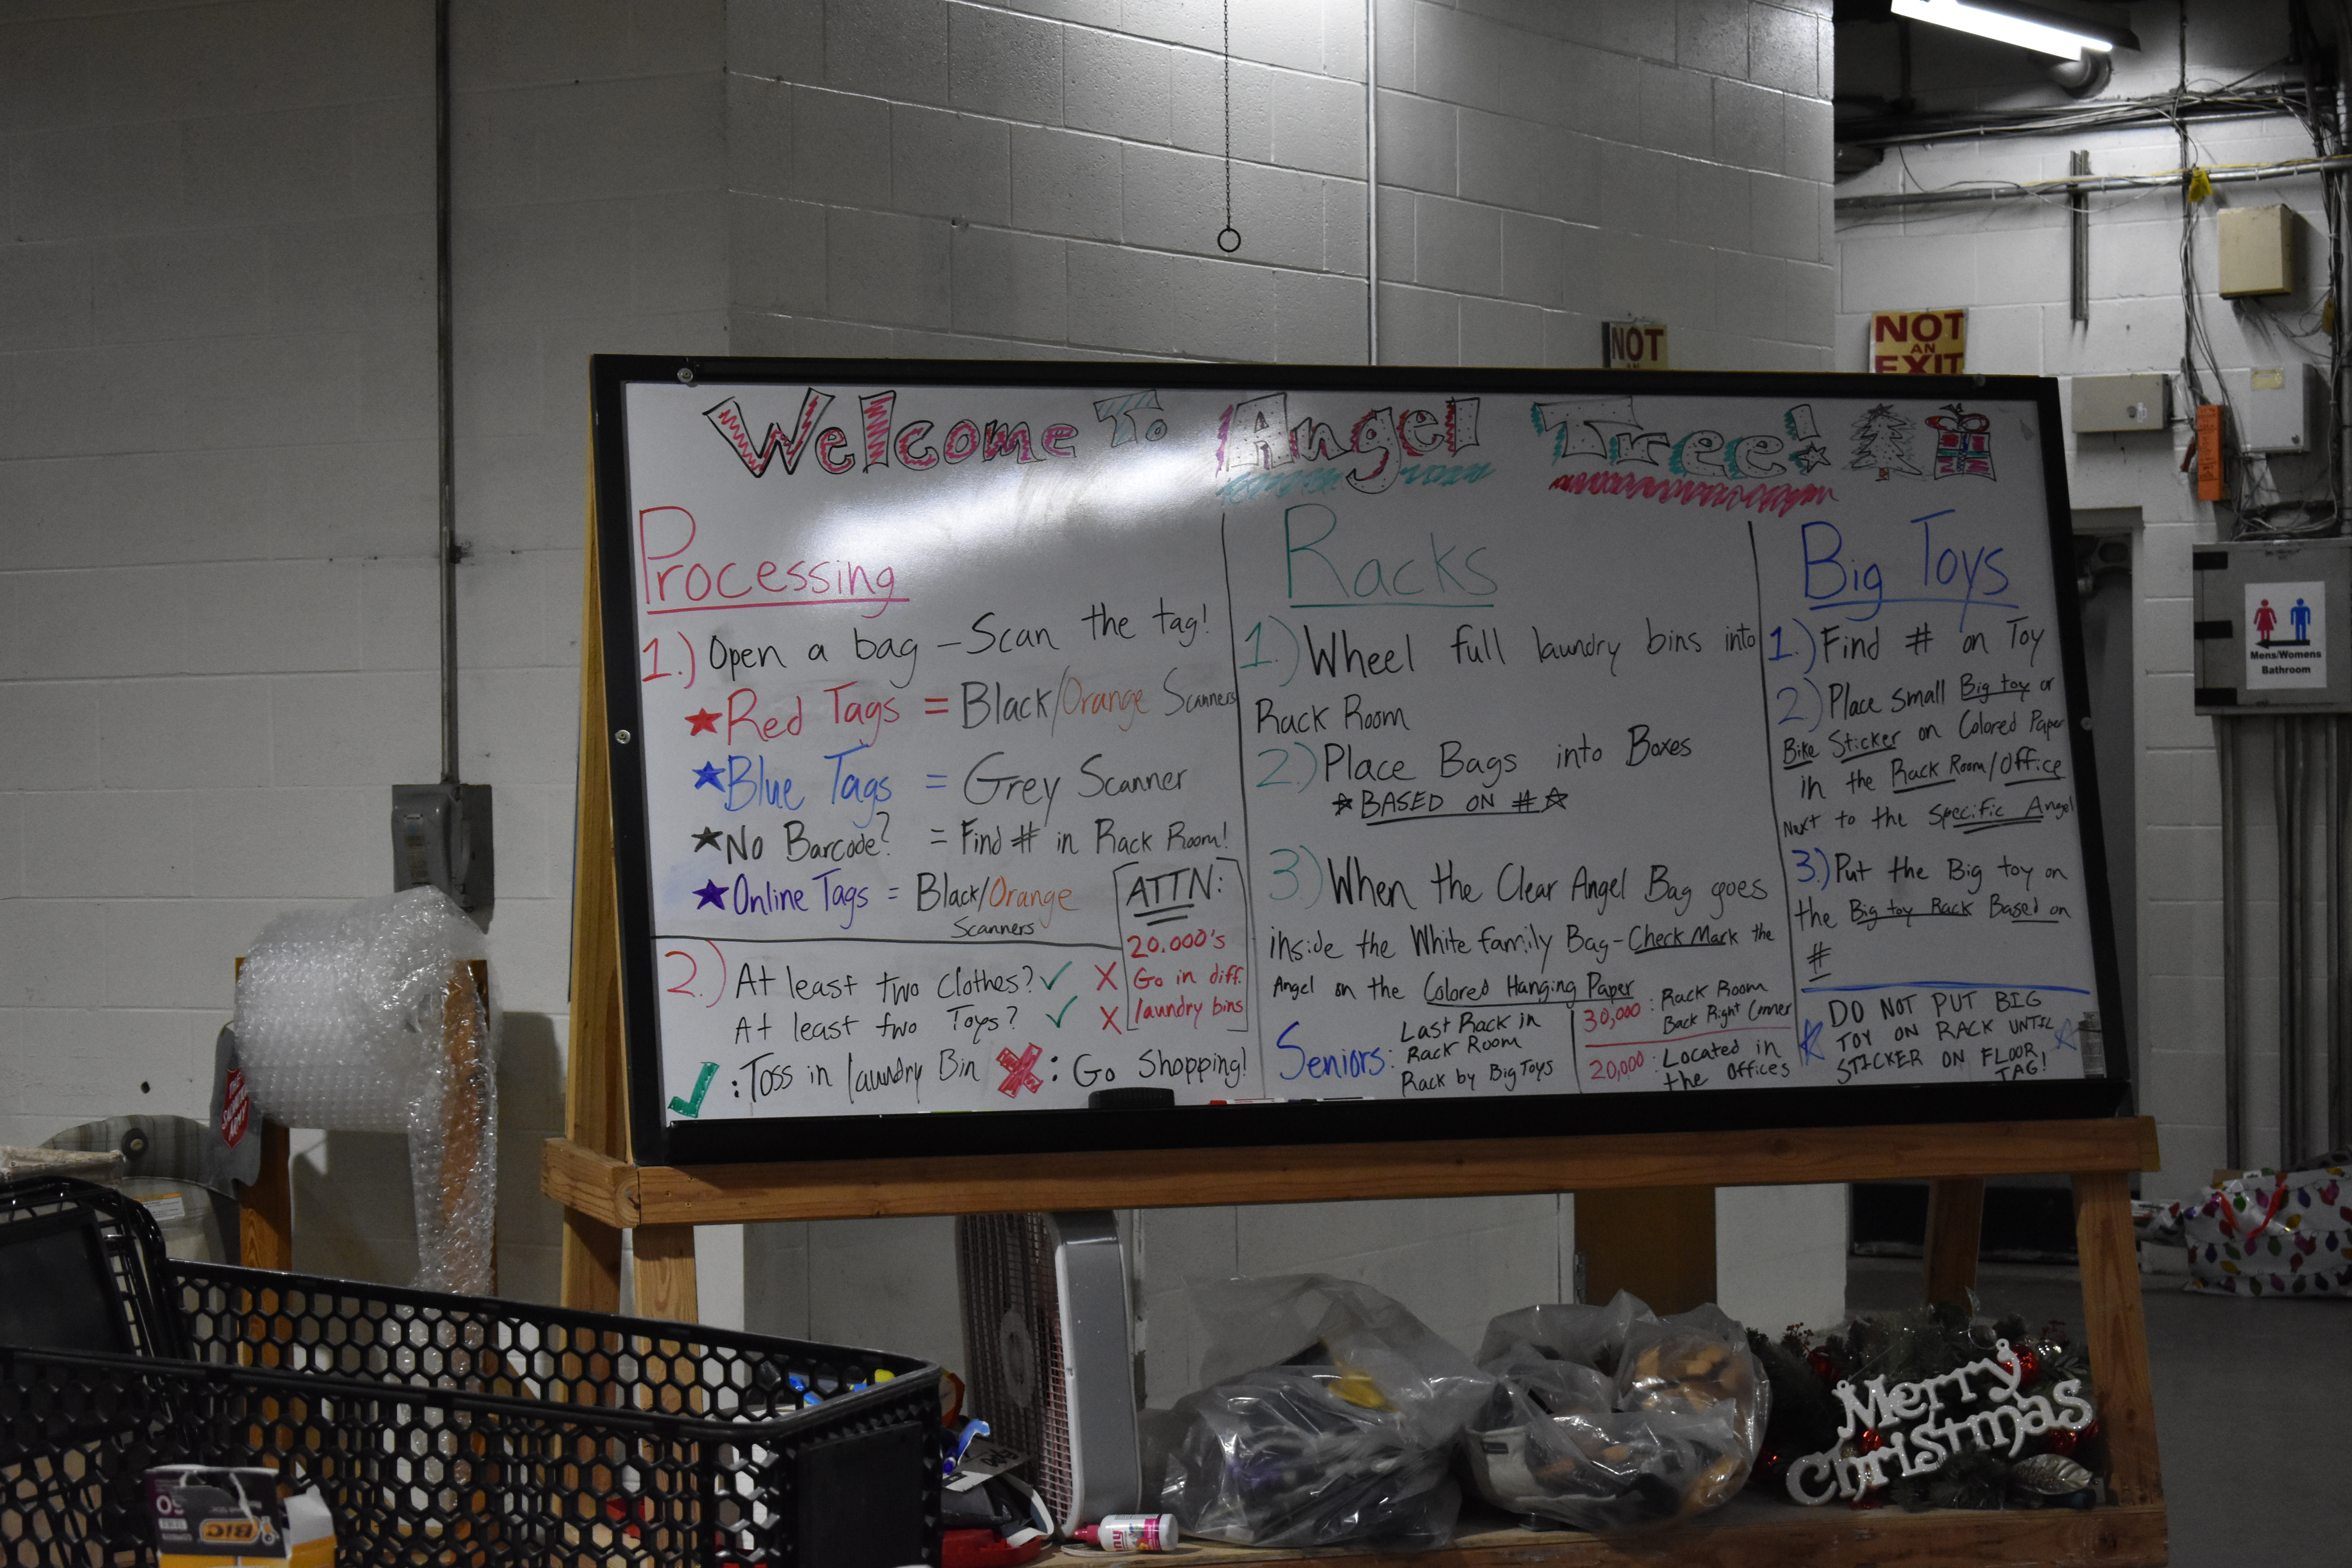 Welcome To Angel Tree!
Processing
1.) Open a bag - Scan the tag!
Red Tags = Black/Orange Scanners
Blue Tags = Grey Scanner
No Barcode? = Find # in Rack Room!
Online Tags = Black/Orange
Scanners
ATTN:
20.000's
Go in diff.
laundry bins
2.) At least two clothes? ✓ X
At least two Toys? ✓ X
✓: Toss in laundry Bin X: Go Shopping!
Racks
1.) Wheel full laundry bins into
Rack Room
2.) Place Bags into Boxes
☆BASED ON #☆
3.) When the Clear Angel Bag goes
inside the White family Bag - Check Mark the
Angel on the Colored Hanging Paper
Seniors: Last Rack in
Rack Room
Rack by Big Toys
30,000: Rack Room
Back Right Corner
20,000: Located in
the Offices
Big Toys
1.) Find # on Toy
2.) Place small Big toy or
Bike Sticker on Colored Paper
in the Rack Room/Office
Next to the Specific Angel
3.) Put the Big toy on
the Big toy Rack Based on
#
DO NOT PUT BIG
TOY ON RACK UNTIL
STICKER ON FLOOR
TAG!
NOT
NOT
AN
EXIT
Mens/Womens
Bathroom
THE
SALVATION
ARMY
Merry
Christmas
50
BIC